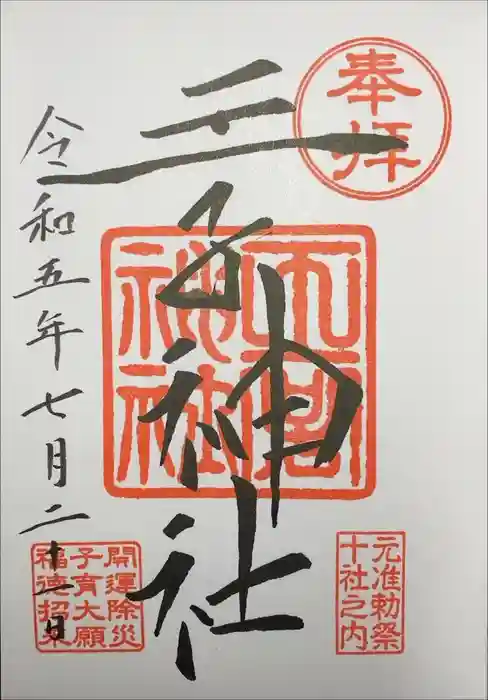 奉拝
王子神社
令和五年七月二十一日
神社
元准勅祭
十社之内
開運除災
子育大願
福徳招来